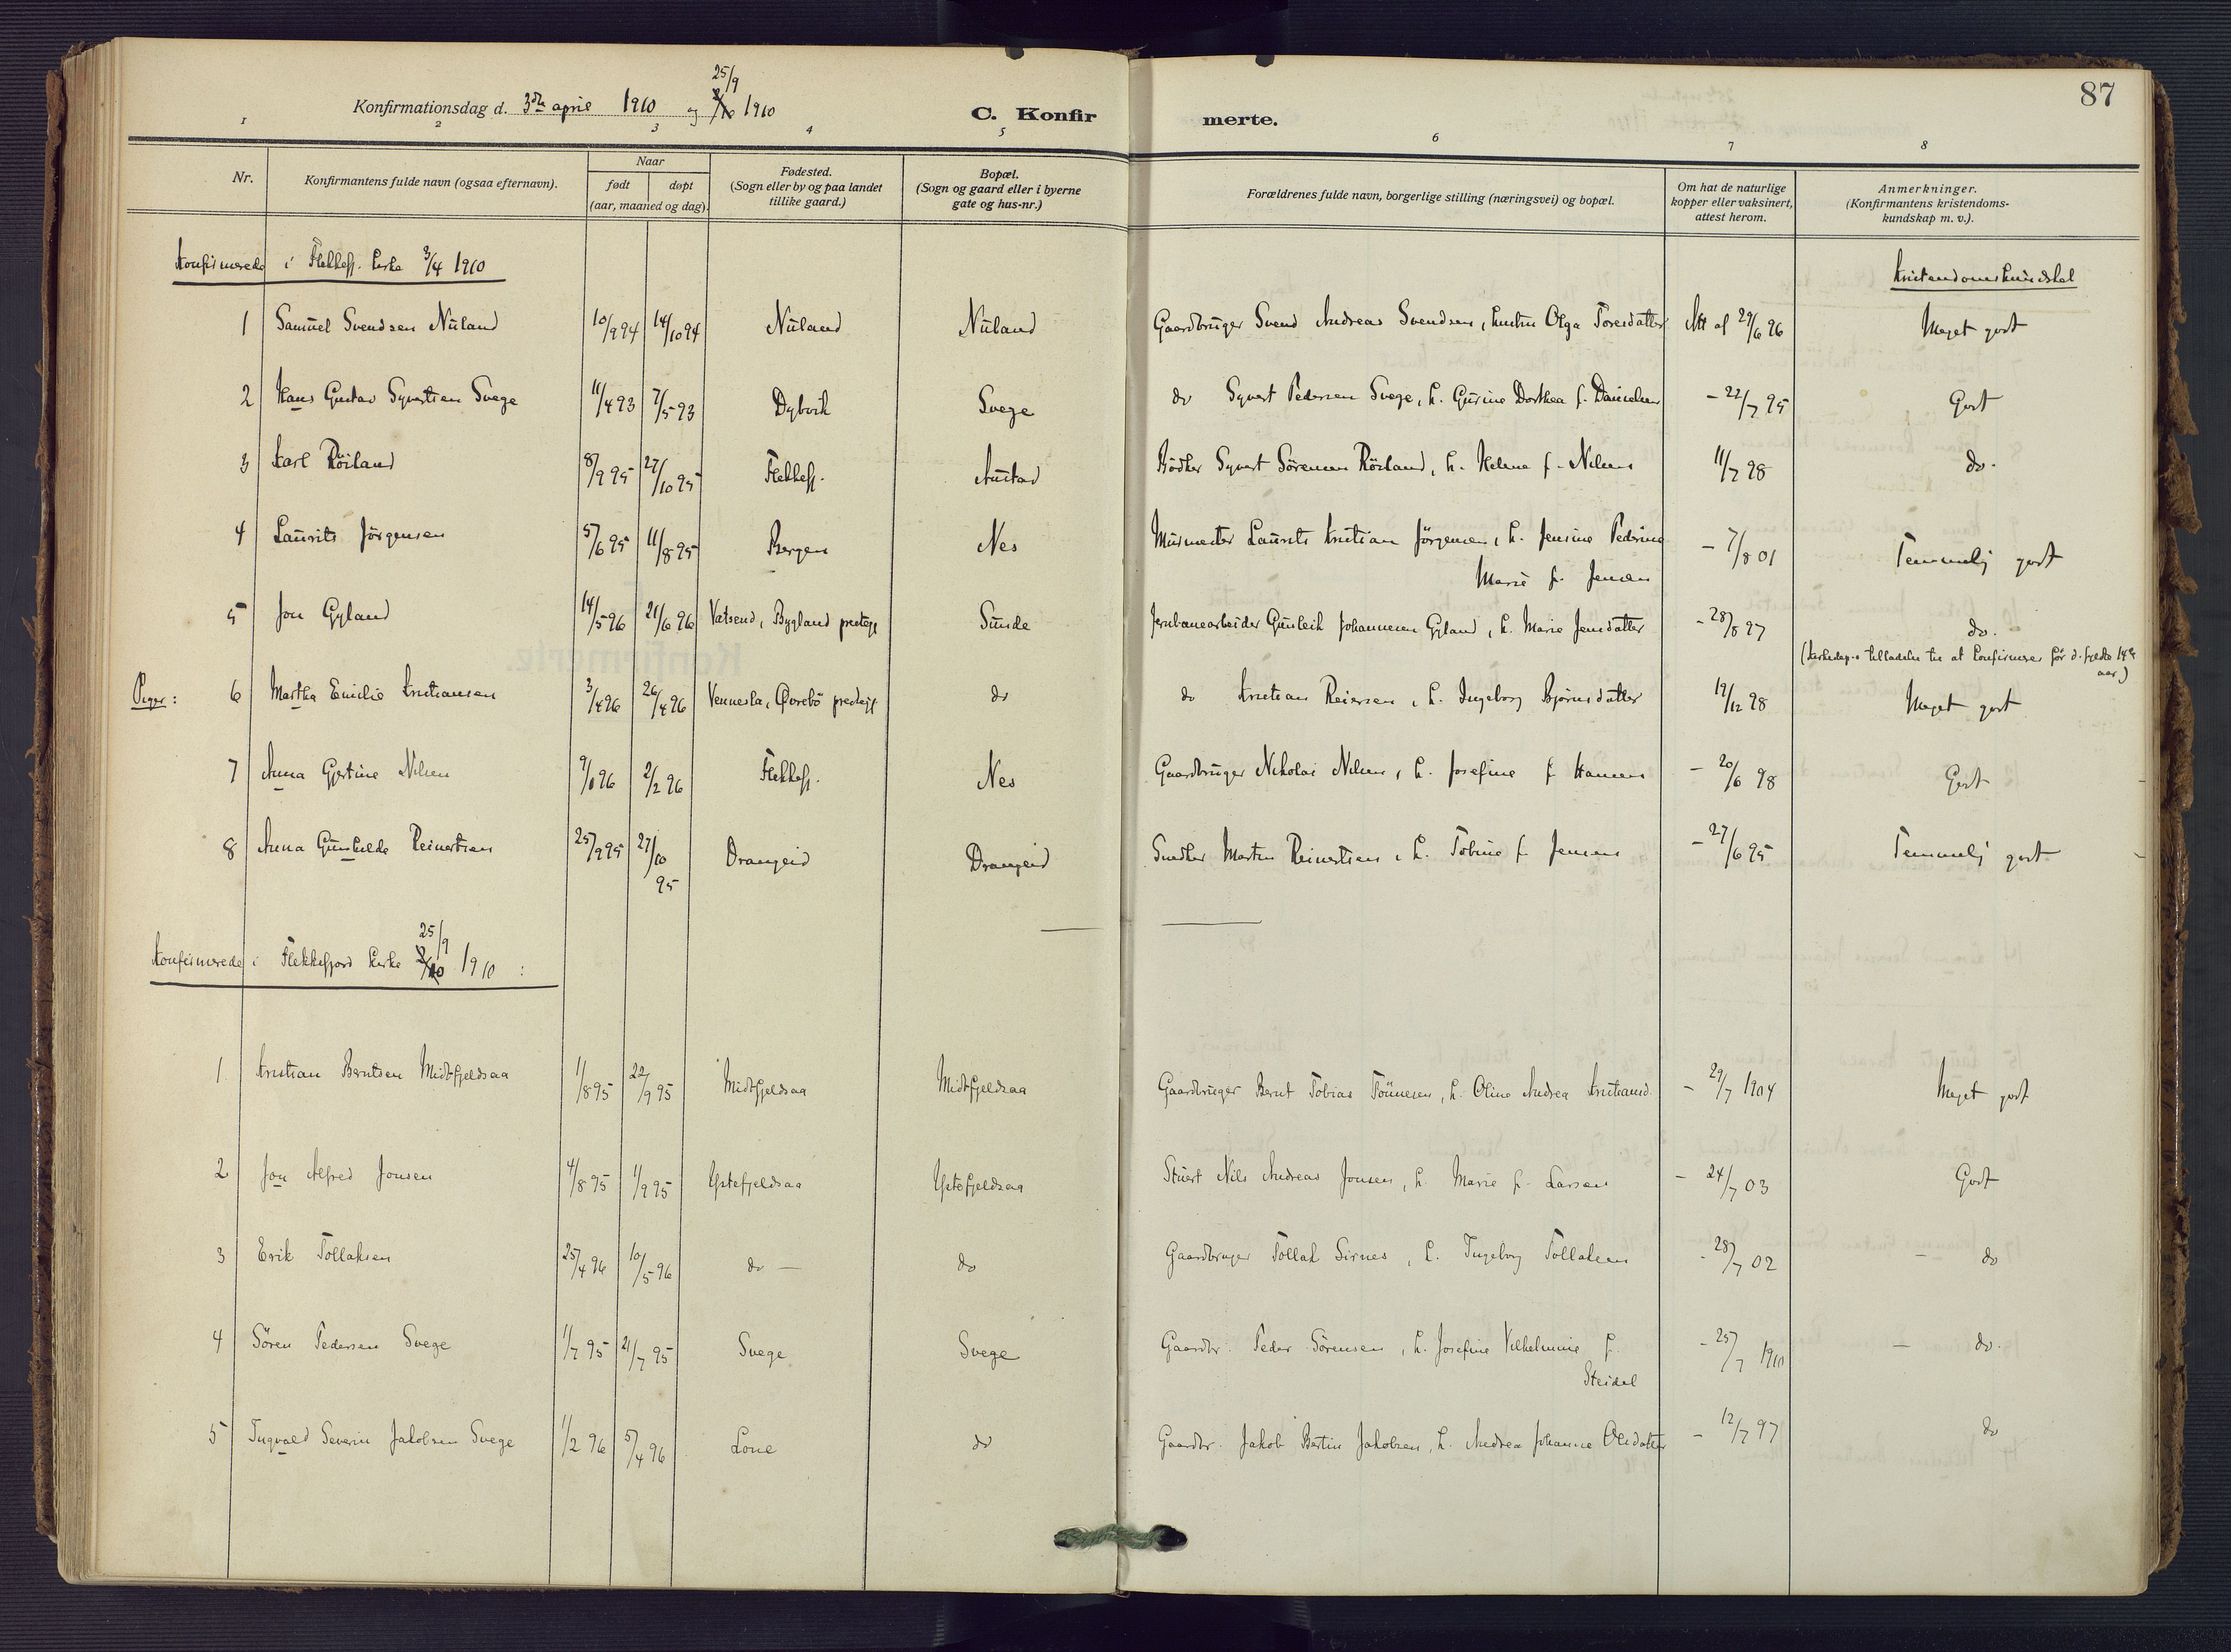 87
Konfirmationsdag d. 3die april 1910 og 25/9 1910
C. Konfirmerte.
1 2 3 4 5 6 7 8
Nr.
Konfirmantens fulde navn (ogsaa efternavn).
Naar
født
døpt
(aar, maaned og dag).
Fødested.
(Sogn eller by og paa landet
tillike gaard.)
Bopæl.
(Sogn og gaard eller i byerne
gate og hus-nr.)
Forældrenes fulde navn, borgerlige stilling (næringsvei) og bopæl.
Om hat de naturlige
kopper eller vaksinert,
attest herom.
Anmerkninger.
(Konfirmantens kristendoms-
kundskap m. v.).
Konfirmerede i Flekkefj. kirke 3/4 1910
Kristendomskundskab
1 Samuel Svendsen Nuland 10/9 94 14/10 94 Nuland Nuland Gaardbruger Svend Andreas Svendsen, hustru Olga Toresdatter Att af 29/6 96 Meget godt
2 Hans Gustav Syvertsen Svege 11/4 93 7/5 93 Dybvik Svege do Syvert Pedersen Svege, h. Gurine Dorthea f. Danielsen - 22/7 95 Godt
3 Karl Röiland 8/9 95 27/10 95 Flekkefj. Austad Bödker Syvert Sörensen Röiland, h. Helene f. Nilsen 11/7 98 do.
4 Laurits Jörgensen 5/6 95 11/8 95 Bergen Nes Murmester Laurits Kristian Jörgensen, h. Jensine Pedrine
Marie f. Jensen - 7/8 01 Temmelig godt
5 Jon Gyland 14/5 96 21/6 96 Vatsend, Bygland prestegj Sunde Jernbanearbeider Gunleik Johannesen Gyland, h. Marie Jensdatter - 28/8 97 do.
(Kirkedep.s tilladelse til at konfirmeres før d. fyldte 14de
aar)
Piger: 6 Martha Emilie Kristiansen 3/4 96 26/4 96 Vennesla, Øvrebö prestegj. do do Kristian Reiersen, h. Ingeborg Bjørnsdatter 19/12 98 Meget godt
7 Anna Gjertine Nilsen 9/1 96 2/2 96 Flekkefj. Nes Gaardbruger Nikolai Nilsen, h. Josefine f. Hansen - 20/6 98 Godt
8 Anna Gunhilde Reinertsen 25/9 95 27/10
95 Drangeid Drangeid Snedker Martin Reinertsen, h. Tobine f. Jensen - 27/6 95 Temmelig godt
Konfirmerede i Flekkefjord kirke 25/9 1910 :
1 Kristian Berntsen Midtfjeldsaa 1/8 95 22/9 95 Midtfjeldsaa Midtfjeldsaa Gaardbruger Bernt Tobias Tönnesen, h. Oline Andrea Kristiansd. - 29/7 1904 Meget godt
2 Jon Alfred Jonsen 4/8 95 1/9 95 Ystefjeldsaa Ystefjeldsaa Stuert Nils Andreas Jonsen, h. Marie f. Larsen - 24/7 03 Godt
3 Erik Tollaksen 25/4 96 10/5 96 do - do Gaardbruger Tollak Sirnes, h. Ingeborg Tollaksen - 28/7 02 - do
4 Sören Pedersen Svege 1/7 95 21/7 95 Svege Svege Gaardbr. Peder Sörensen, h. Josefine Vilhelmine f.
Steidel - 25/7 1910 - do.
5 Ingvald Severin Jakobsen Svege 1/2 96 5/4 96 Lone do Gaardbr. Jakob Bertin Jakobsen, h. Andrea Johanne Olsdatter - 12/7 97 do